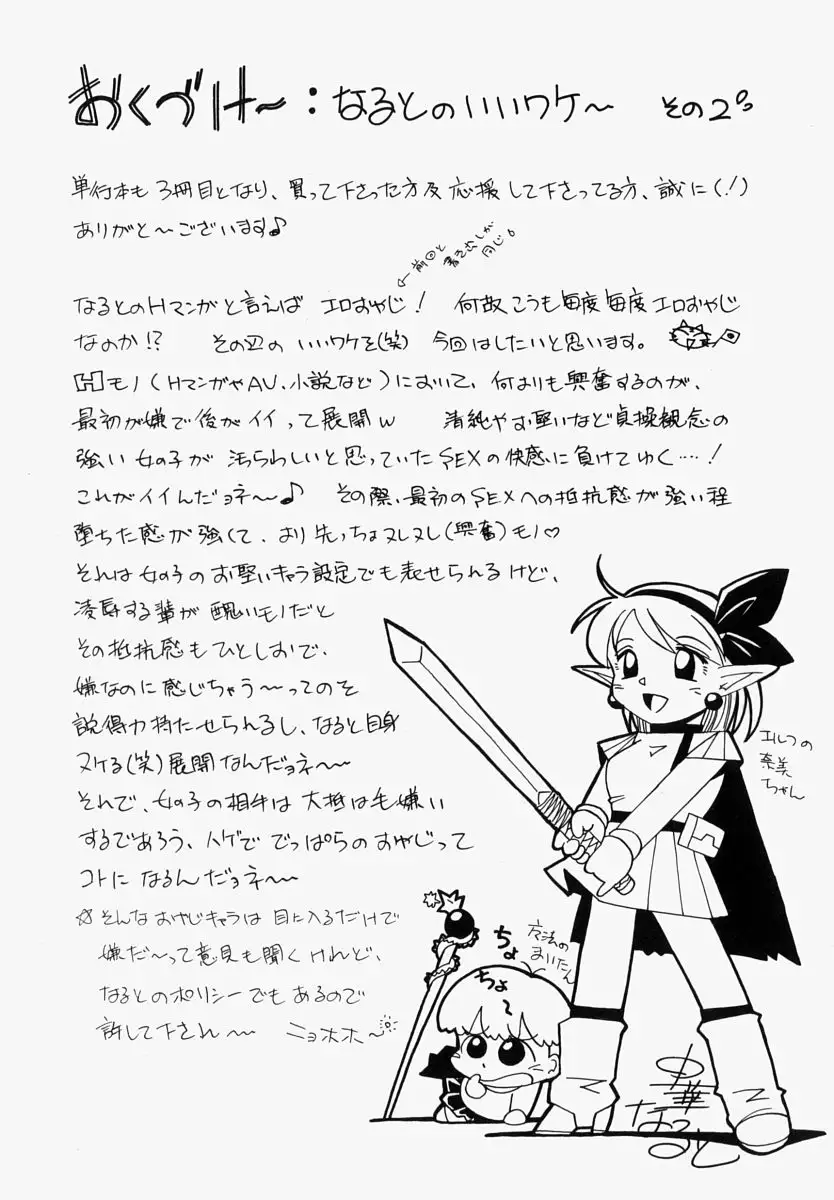 おくづけ〜:なるとのいいワケ〜 その2
単行本も3冊目となり、買って下さった方及応援して下さってる方、誠に(!)
ありがと〜ございます♪
←前回と
書き出しが
同じ。
なるとのHマンガと言えば エロおやじ! 何故こうも毎度毎度エロおやじ
なのか!? その辺のいいワケを(笑) 今回はしたいと思います。
Hモノ(HマンガやAV、小説など)において、何よりも興奮するのが、
最初が嫌で後がイイって展開w 清純やお堅いなど貞操観念の
強い女の子が 汚らわしいと思っていたSEXの快感に負けてゆく…!
これがイイんだョネ〜♪ その際、最初のSEXへの抵抗感が強い程
堕ちた感が強くて、より先っちょヌレヌレ(興奮)モノ♡
それは女の子のお堅いキャラ設定でも表せられるけど、
凌辱する輩が醜いモノだと
その抵抗感もひとしおで、
嫌なのに感じちゃう〜ってのを
説得力持たせられるし、なると自身
ヌケる(笑)展開なんだョネ〜〜
それで、女の子の相手は大抵は毛嫌い
するであろう、ハゲで でっぱらのおやじって
コトになるんだョネ〜〜
☆そんなおやじキャラは目に入るだけで
嫌だ〜って意見も聞くけれど、
なるとのポリシーでもあるので
許して下され〜〜 ニョホホ〜
エルフの
奈美
ちゃん
ちょ
ちょ〜
魔法の
まいたん
中華
なると